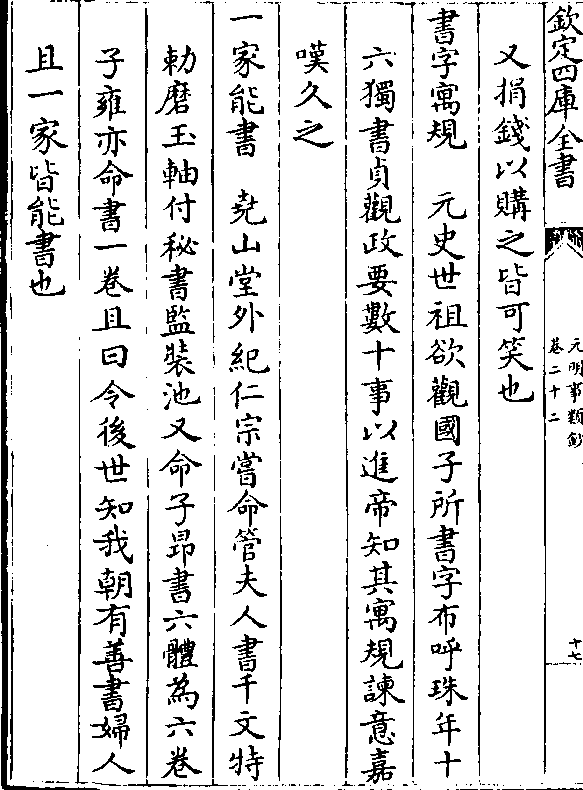 欽定四庫全書
元明事類鈔
卷二十二
十七
又捐錢以購之皆可笑也
書字寓規　元史世祖欲觀國子所書字布呼珠年十
六獨書貞觀政要數十事以進帝知其寓規諫意嘉
嘆久之
一家能書　堯山堂外紀仁宗嘗命管夫人書千文特
勅磨玉軸付秘書監裝池又命子昻書六體為六卷
子雍亦命書一卷且曰令後世知我朝有善書婦人
且一家皆能書也